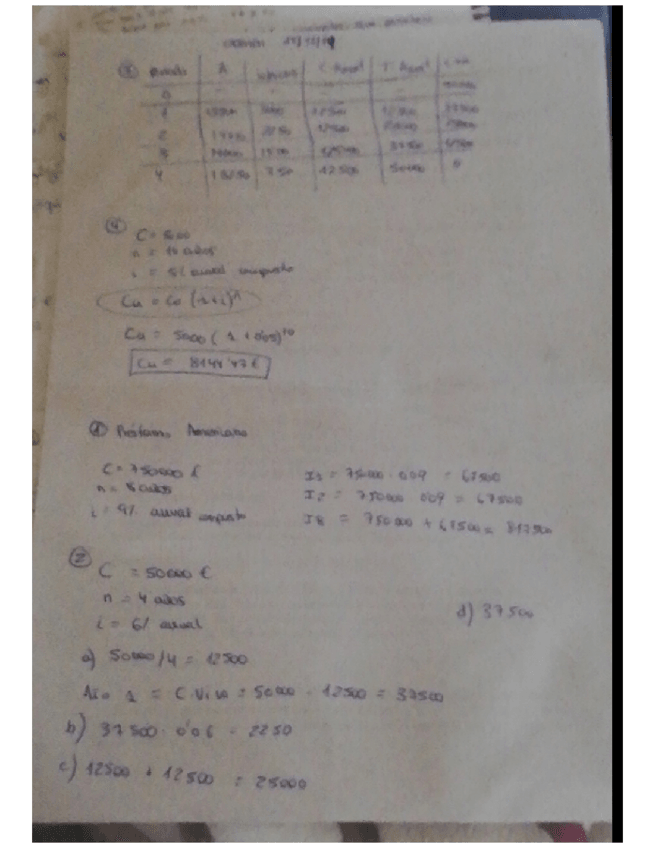 ③ Periodo A C. Amort T. Amort C. Vivo
0 - - - - 50000
1 15500 3000 12500 12500 37500
2 14750 2250 12500 25000 25000
3 14000 1500 12500 37500 12500
4 13250 750 12500 50000 0
④
C = 5000
n = 10 años
i = 5% anual compuesto
Cn = Co (1+i)^n
Cn = 5000 (1 + 0'05)^10
Cn = 8144'47 €
① Préstamo Americano
C = 750000 €
n = 8 años
i = 9% anual compuesto
I1 = 75000 . 0'09 = 67500
I2 = 750000 0'09 = 67500
I8 = 750000 + 67500 = 817500
②
C = 50000 €
n = 4 años
i = 6% anual
a) 50000/4 = 12500
Año 1 = C. Vivo = 50000 - 12500 = 37500
b) 37500 . 0'06 = 2250
c) 12500 + 12500 = 25000
d) 37500